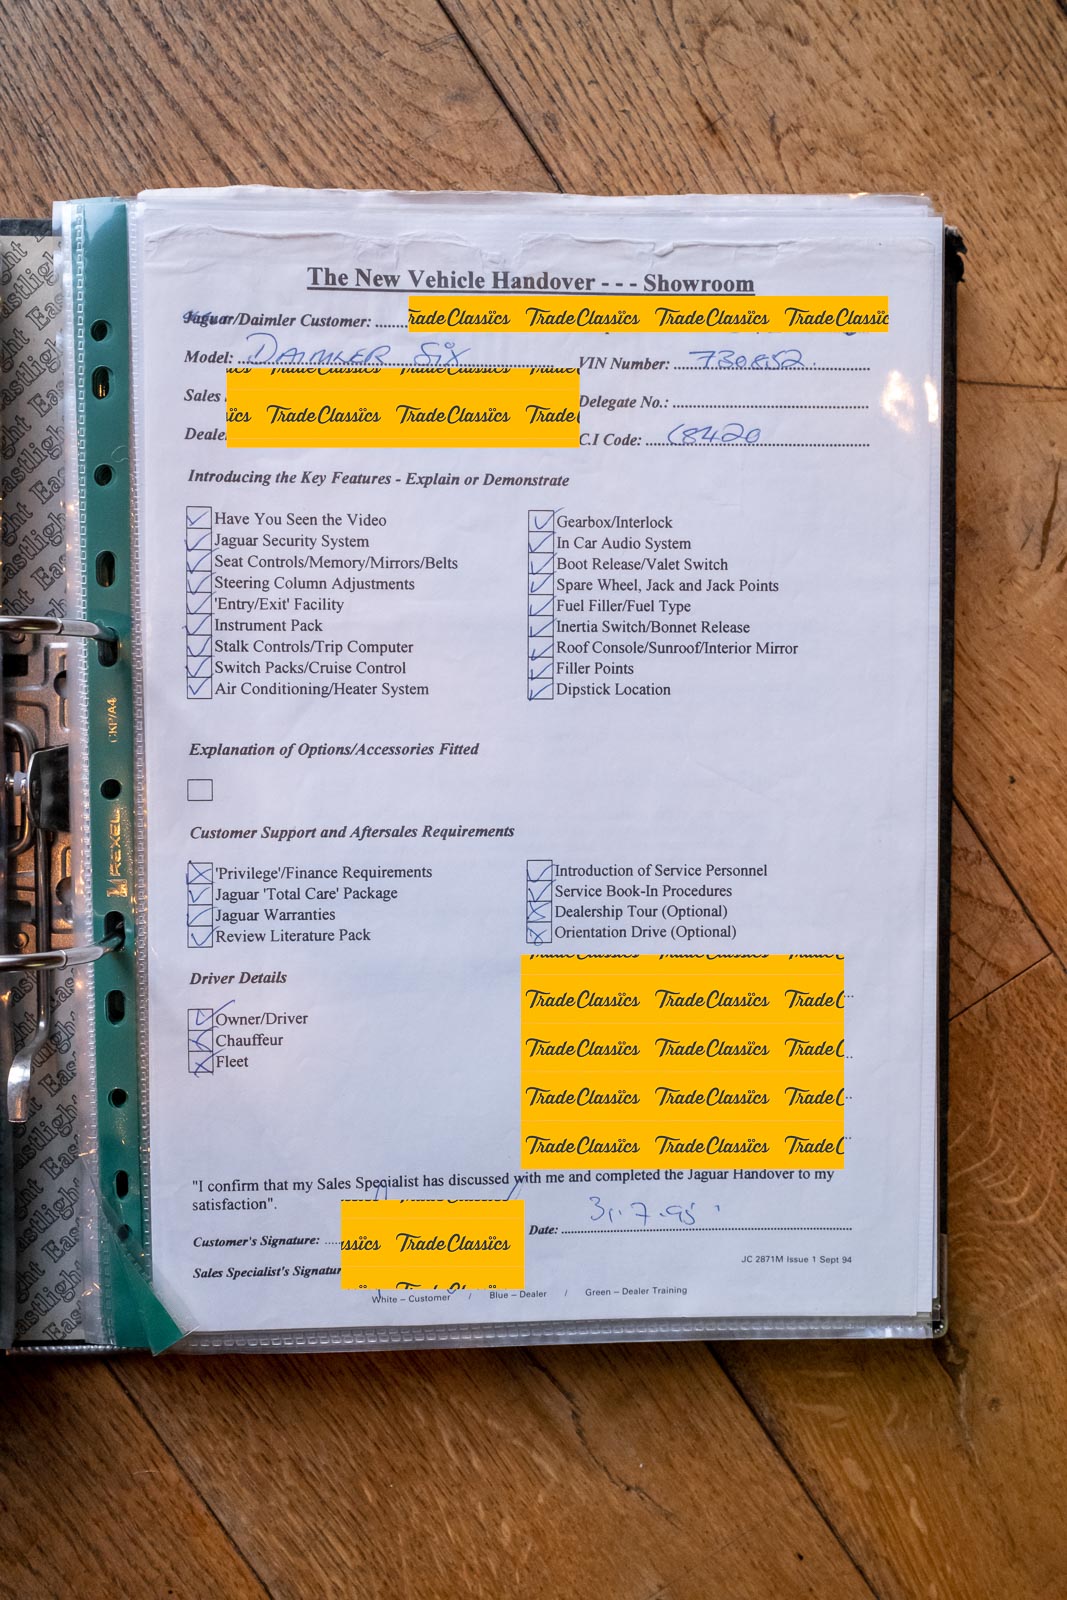 The New Vehicle Handover - - - Showroom
Jaguar/Daimler Customer: TradeClassics TradeClassics TradeClassics TradeClassics
Model: DAIMLER SIX VIN Number: 730852
Sales TradeClassics TradeClassics Delegate No.:
Deale C.I Code: 68420
Introducing the Key Features - Explain or Demonstrate
Have You Seen the Video
Jaguar Security System
Seat Controls/Memory/Mirrors/Belts
Steering Column Adjustments
'Entry/Exit' Facility
Instrument Pack
Stalk Controls/Trip Computer
Switch Packs/Cruise Control
Air Conditioning/Heater System
Gearbox/Interlock
In Car Audio System
Boot Release/Valet Switch
Spare Wheel, Jack and Jack Points
Fuel Filler/Fuel Type
Inertia Switch/Bonnet Release
Roof Console/Sunroof/Interior Mirror
Filler Points
Dipstick Location
Explanation of Options/Accessories Fitted
Customer Support and Aftersales Requirements
'Privilege'/Finance Requirements
Jaguar 'Total Care' Package
Jaguar Warranties
Review Literature Pack
Introduction of Service Personnel
Service Book-In Procedures
Dealership Tour (Optional)
Orientation Drive (Optional)
Driver Details
Owner/Driver
Chauffeur
Fleet
TradeClassics TradeClassics TradeC
TradeClassics TradeClassics TradeC
TradeClassics TradeClassics TradeC
TradeClassics TradeClassics TradeC
"I confirm that my Sales Specialist has discussed with me and completed the Jaguar Handover to my
satisfaction".
Customer's Signature: TradeClassics Date: 31.7.95
Sales Specialist's Signatur
JC 2871M Issue 1 Sept 94
White – Customer / Blue – Dealer / Green – Dealer Training
CKP/A4
REXEL
Eastlight